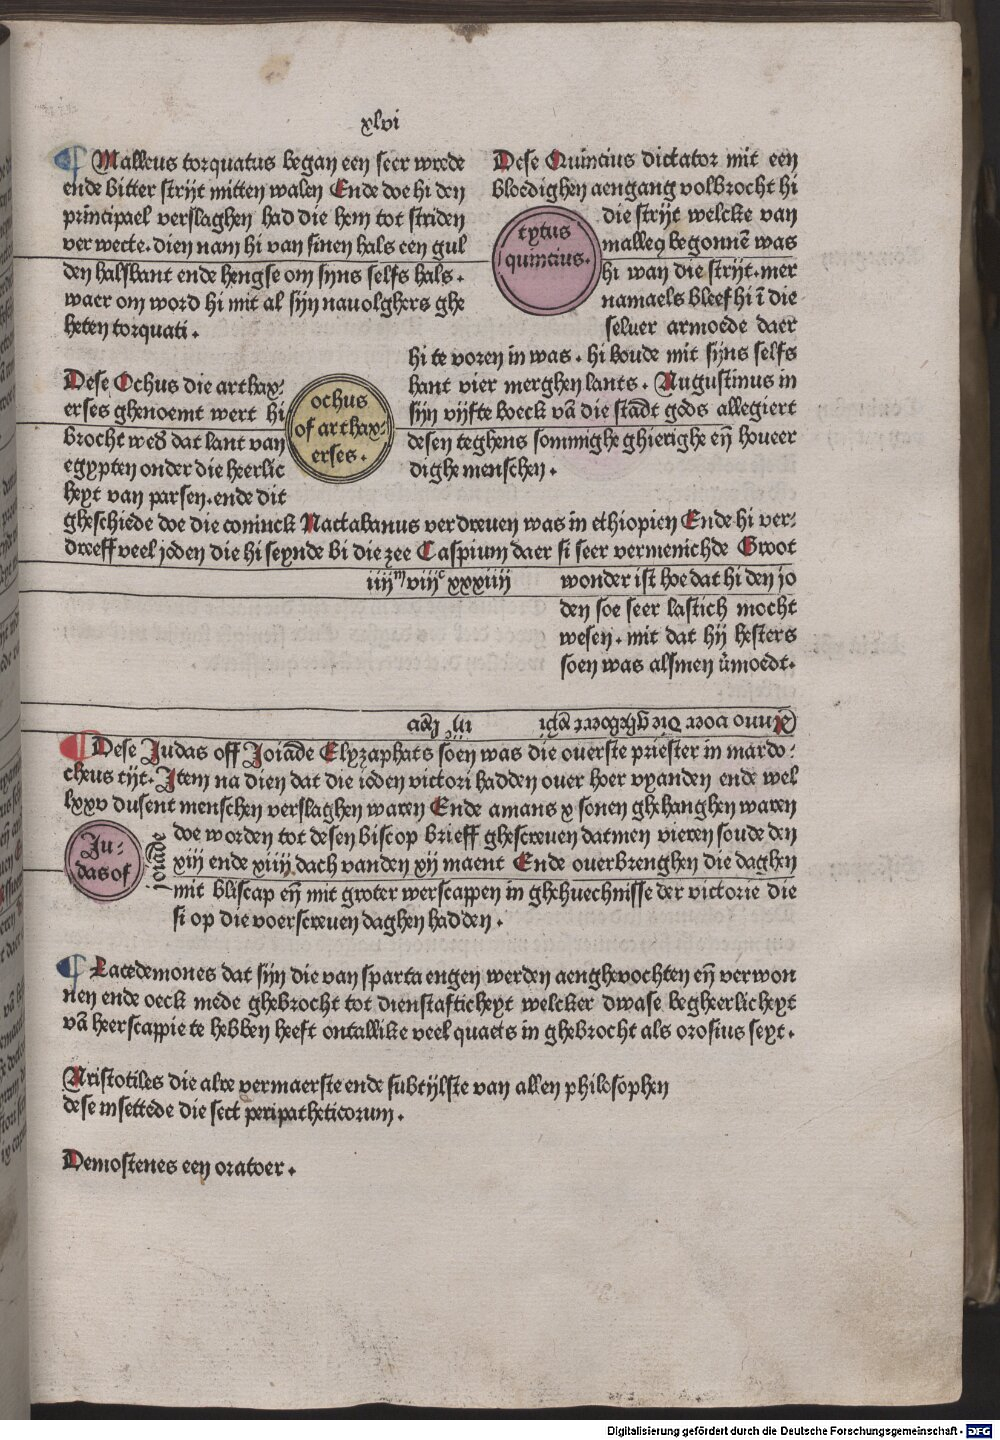 xlvi
¶ Malleus torquatus began een seer wrede
ende bitter strijt mitten walen Ende doe hi den
principael verslaghen had die hem tot striden
verwecte. dien nam hi van sinen hals een gul
den halsbant ende hengse om sijns selfs hals.
waer om word hi mit al sijn nauolghers ghe
heten torquati.
Dese Quincius dictator mit een
bloedighen aengang volbrocht hi
die strijt welcke van
malleꝯ begonnē was
hi wan die strijt. mer
namaels bleef hi ī die
seluer armoede daer
hi te voren in was. hi boude mit sijns selfs
hant vier merghen lants. Augustinus in
sijn vijfte boeck vā die stadt gods allegiert
desen teghens sommighe ghierighe eñ houeer
dighe menschen.
tytus
quincius.
Dese Ochus die arthax:
erses ghenoemt wert hi
brocht wed̄ dat lant van
egypten onder die heerlic
heyt van parsen. ende dit
ochus
of arthax:
erses.
gheschiede doe die coninck Nactabanus verdreuen was in ethiopien Ende hi ver:
dreeff veel joden die hi seynde bi die zee Caspium daer si seer vermenichde Groot
iiijᵐ viijᶜ xxxiiij
wonder ist hoe dat hi den jo
den soe seer lastich mocht
wesen. mit dat hij hesters
soen was alsmen v̄moedt.
Anno voer die gheboert xp̄i iijᶜ lxv
¶ Dese Judas off Joiade Elyzaphats soen was die ouerste priester in mardo:
cheus tijt. Item na dien dat die ioden victori hadden ouer hoer vyanden ende wel
lxxv dusent menschen verslaghen waren Ende amans x sonen ghehanghen waren
doe worden tot desen biscop brieff ghescreuen datmen vieren soude den
xiij ende xiiij dach vanden xij maent Ende ouerbrenghen die daghen
mit bliscap eñ mit groter werscappen in ghehuechnisse der victorie die
si op die voerscreuen daghen hadden.
Ju:
das of
joiade
¶ Lacedemones dat sijn die van sparta engen werden aenghevochten eñ verwon
nen ende oeck mede ghebrocht tot dienstafticheyt welcker dwase begheerlicheyt
vā heerscappie te hebben heeft ontallike veel quaets in ghebrocht als orosius seyt.
Aristotiles die alre vermaerste ende subtijlste van allen philosophen
dese insettede die sect peripatheticorum.
Demostenes een oratoer.
Digitalisierung gefördert durch die Deutsche Forschungsgemeinschaft - DFG